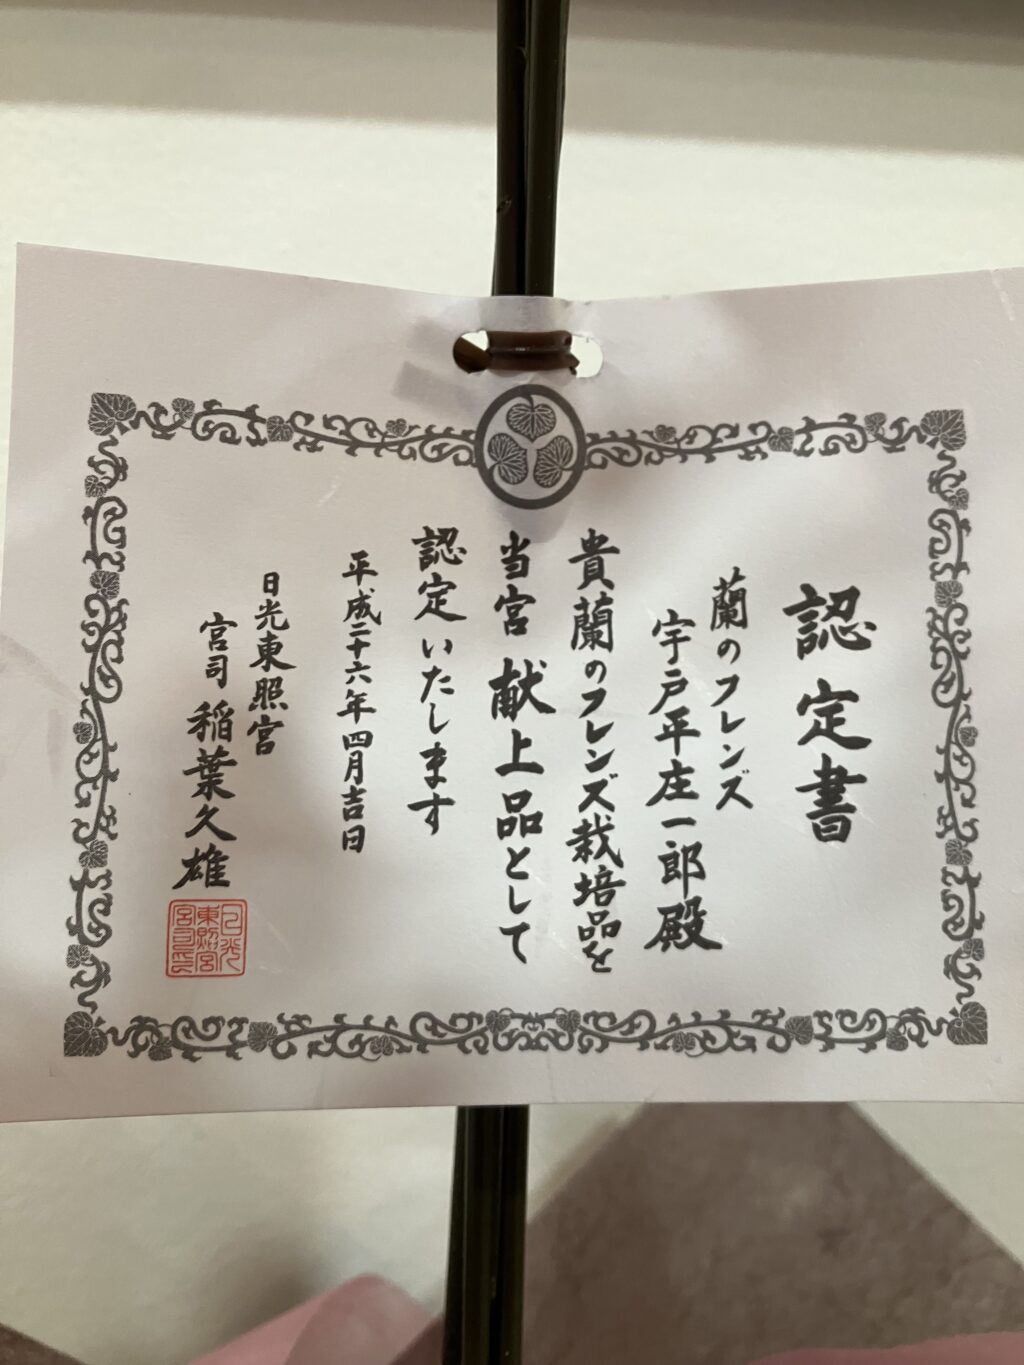 認定書
蘭のフレンズ
宇戸平庄一郎殿
貴蘭のフレンズ栽培品を
当宮献上品として
認定いたします
平成二十六年四月吉日
日光東照宮
宮司 稲葉久雄
日光
東照宮
宮司之印